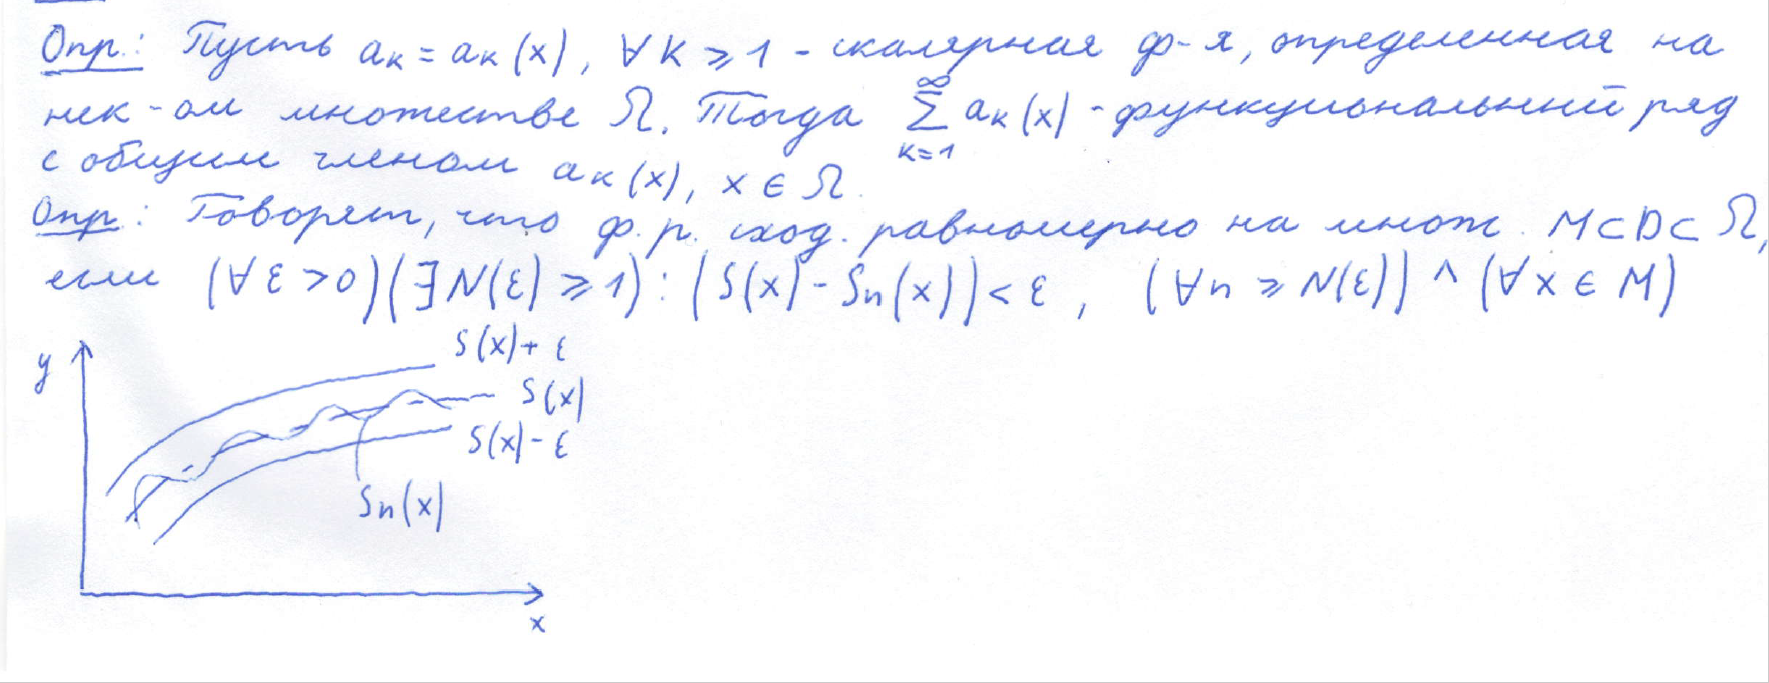 Опр.: Пусть aₖ = aₖ(x), ∀ K ⩾ 1 - скалярная ф-я, определенная на
нек-ом множестве Ω. Тогда ∑_{k=1}^{∞} aₖ(x) - функциональный ряд
с общим членом aₖ(x), x ∈ Ω.
Опр.: Говорят, что ф.р. сход. равномерно на множ. M ⊂ D ⊂ Ω,
если (∀ ε > 0)(∃ N(ε) ⩾ 1) : |S(x) - Sn(x)| < ε, (∀n ⩾ N(ε)) ∧ (∀ x ∈ M)
y
S(x) + ε
S(x)
S(x) - ε
Sn(x)
x